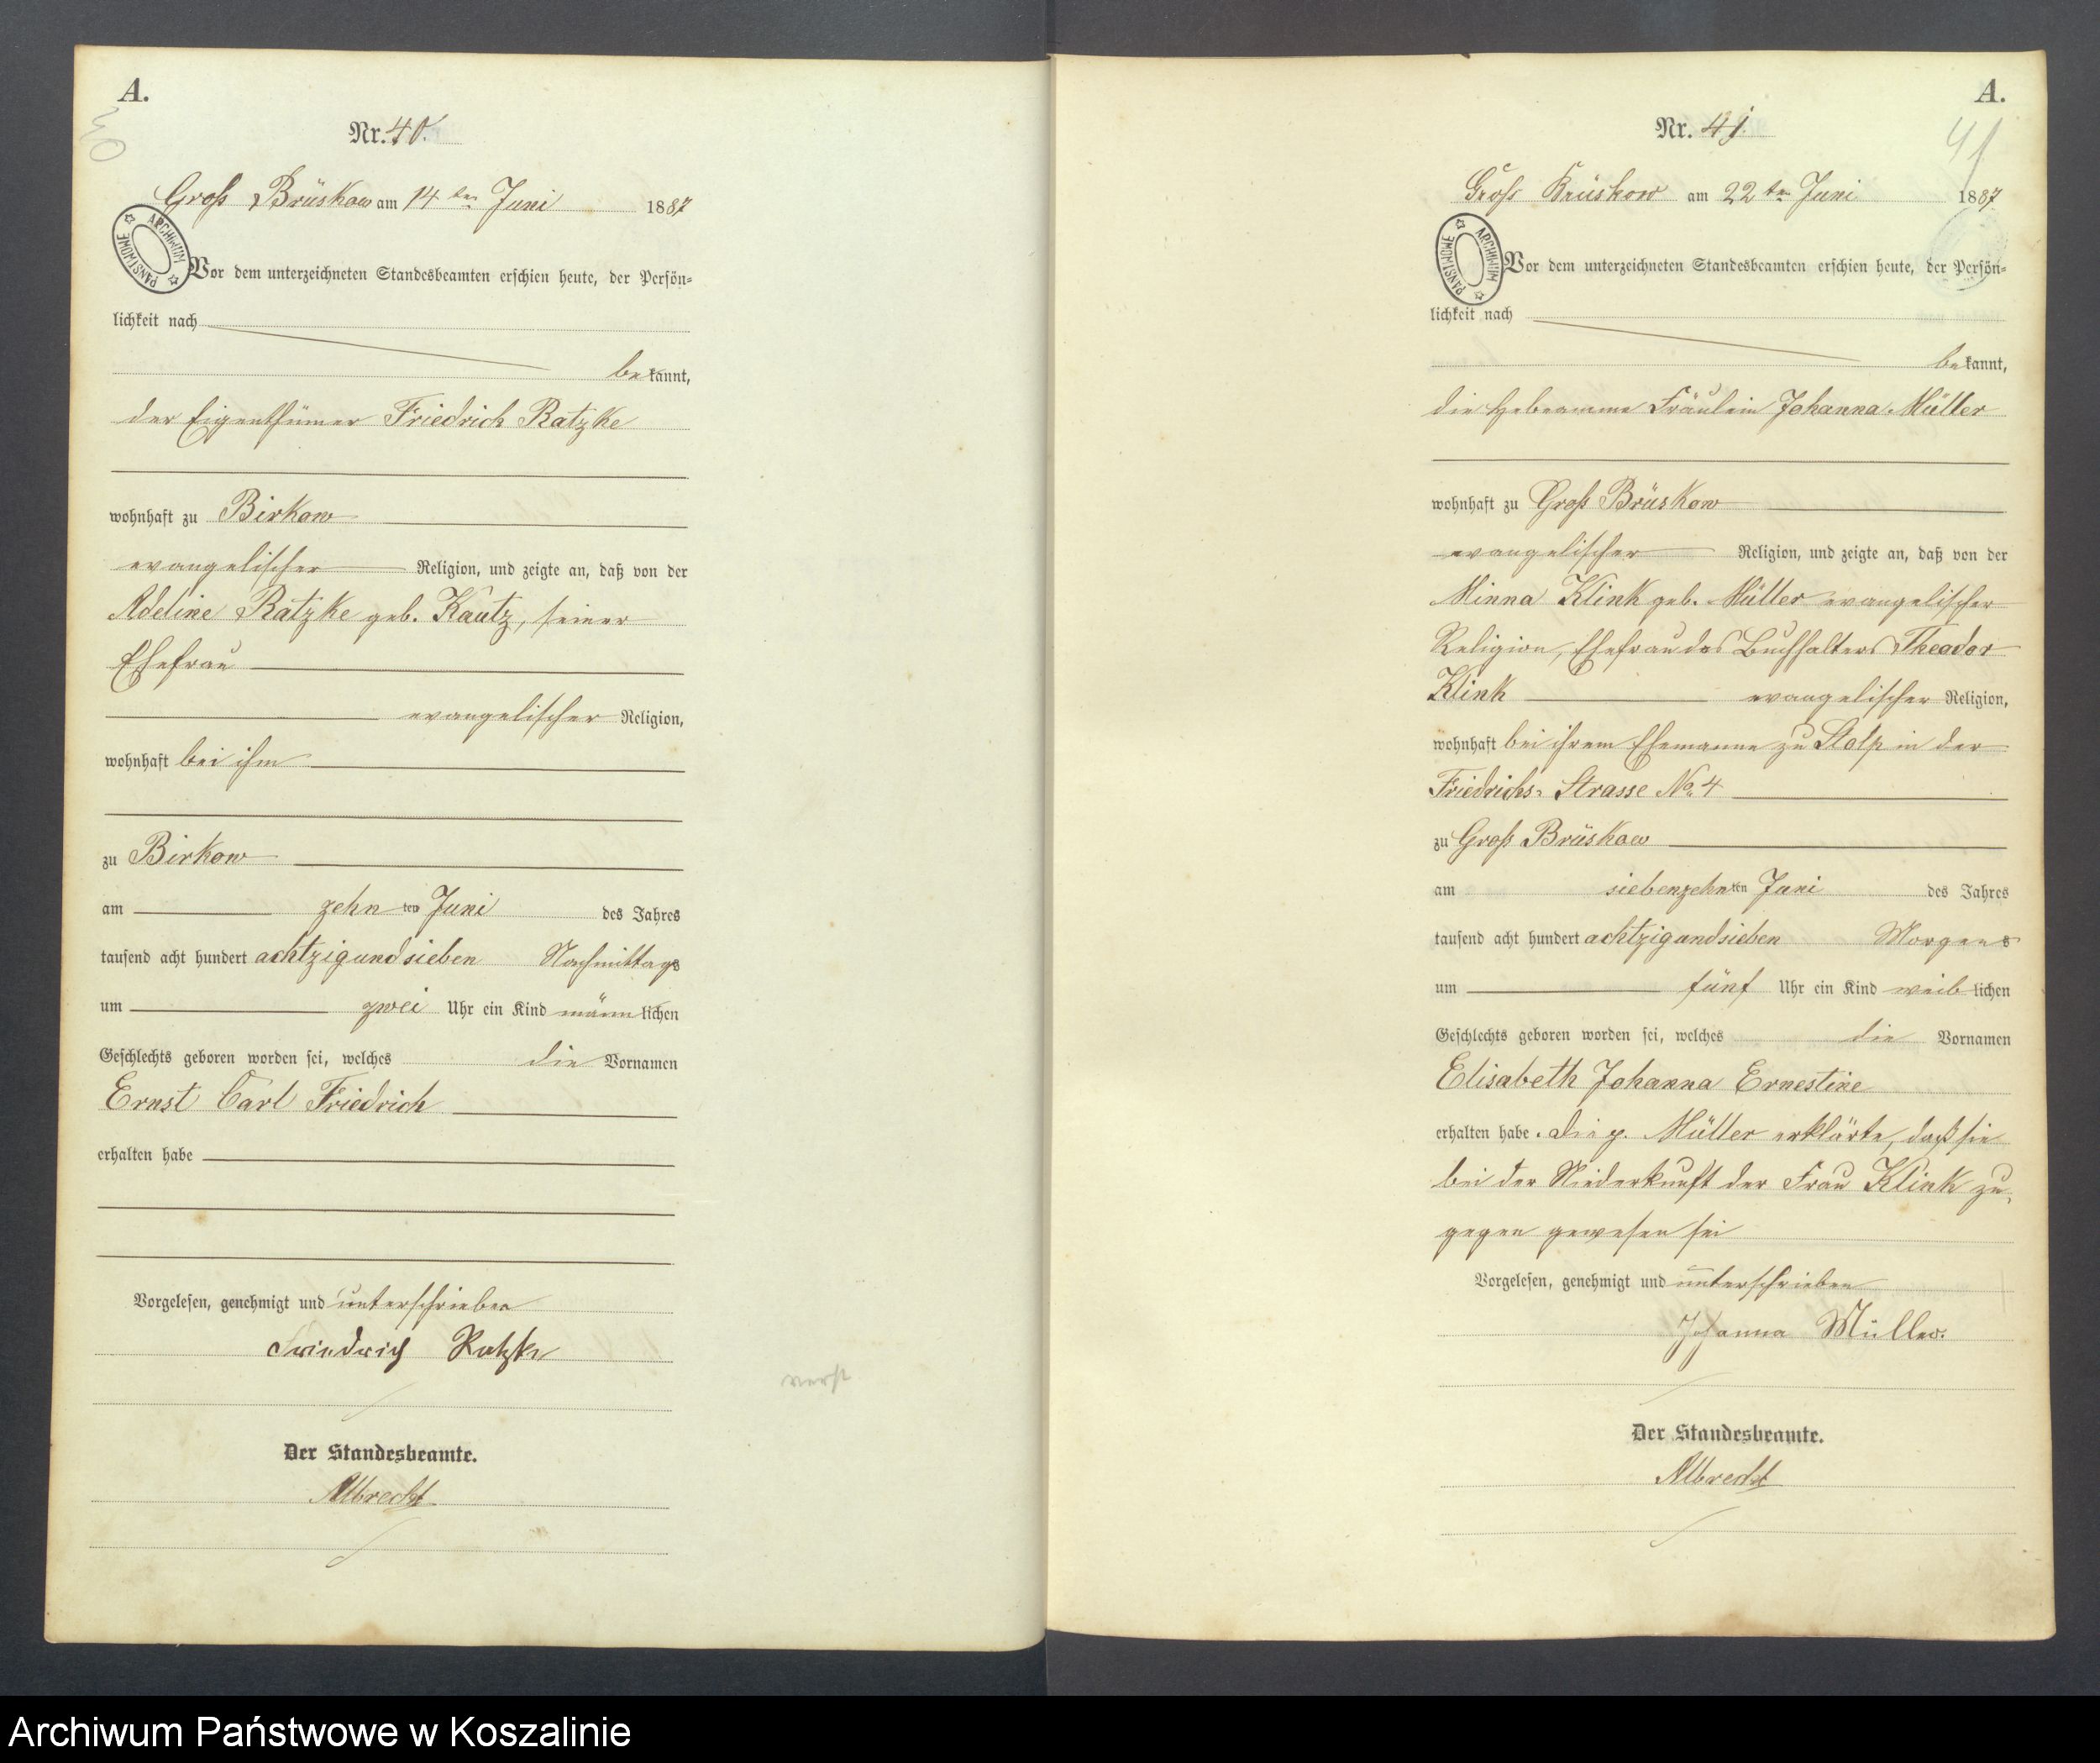 A.
40
Nr. 40.
Groß Brüskow am 14 ten Juni 1887
ARCHIWUM PAŃSTWOWE
Vor dem unterzeichneten Standesbeamten erschien heute, der Persön=
lichkeit nach
bekannt,
der Eigenthümer Friedrich Ratzke
wohnhaft zu Birkow
evangelischer Religion, und zeigte an, daß von der
Adeline Ratzke geb. Kautz, seiner
Ehefrau
evangelischer Religion,
wohnhaft bei ihm
zu Birkow
am zehn ten Juni des Jahres
tausend acht hundert achtzig und sieben Nachmittags
um zwei Uhr ein Kind männlichen
Geschlechts geboren worden sei, welches die Vornamen
Ernst Carl Friedrich
erhalten habe
Vorgelesen, genehmigt und unterschrieben
Friedrich Ratzke
Der Standesbeamte.
Albrecht
A.
41
Nr. 41.
Groß Brüskow am 22 ten Juni 1887
ARCHIWUM PAŃSTWOWE
Vor dem unterzeichneten Standesbeamten erschien heute, der Persön=
lichkeit nach
bekannt,
die Hebeamme Fräulein Johanna Müller
wohnhaft zu Groß Brüskow
evangelischer Religion, und zeigte an, daß von der
Minna Klink geb. Müller evangelischer
Religion, Ehefrau des Buchhalters Theodor
Klink evangelischer Religion,
wohnhaft bei ihrem Ehemanne zu Stolp in der
Friedrichs- Strasse No. 4
zu Groß Brüskow
am siebenzehn ten Juni des Jahres
tausend acht hundert achtzig und sieben Morgens
um fünf Uhr ein Kind weiblichen
Geschlechts geboren worden sei, welches die Vornamen
Elisabeth Johanna Ernestine
erhalten habe. Die p. Müller erklärte, daß sie
bei der Niederkunft der Frau Klink zu-
gegen gewesen sei
Vorgelesen, genehmigt und unterschrieben
Johanna Müller.
Der Standesbeamte.
Albrecht
Archiwum Państwowe w Koszalinie